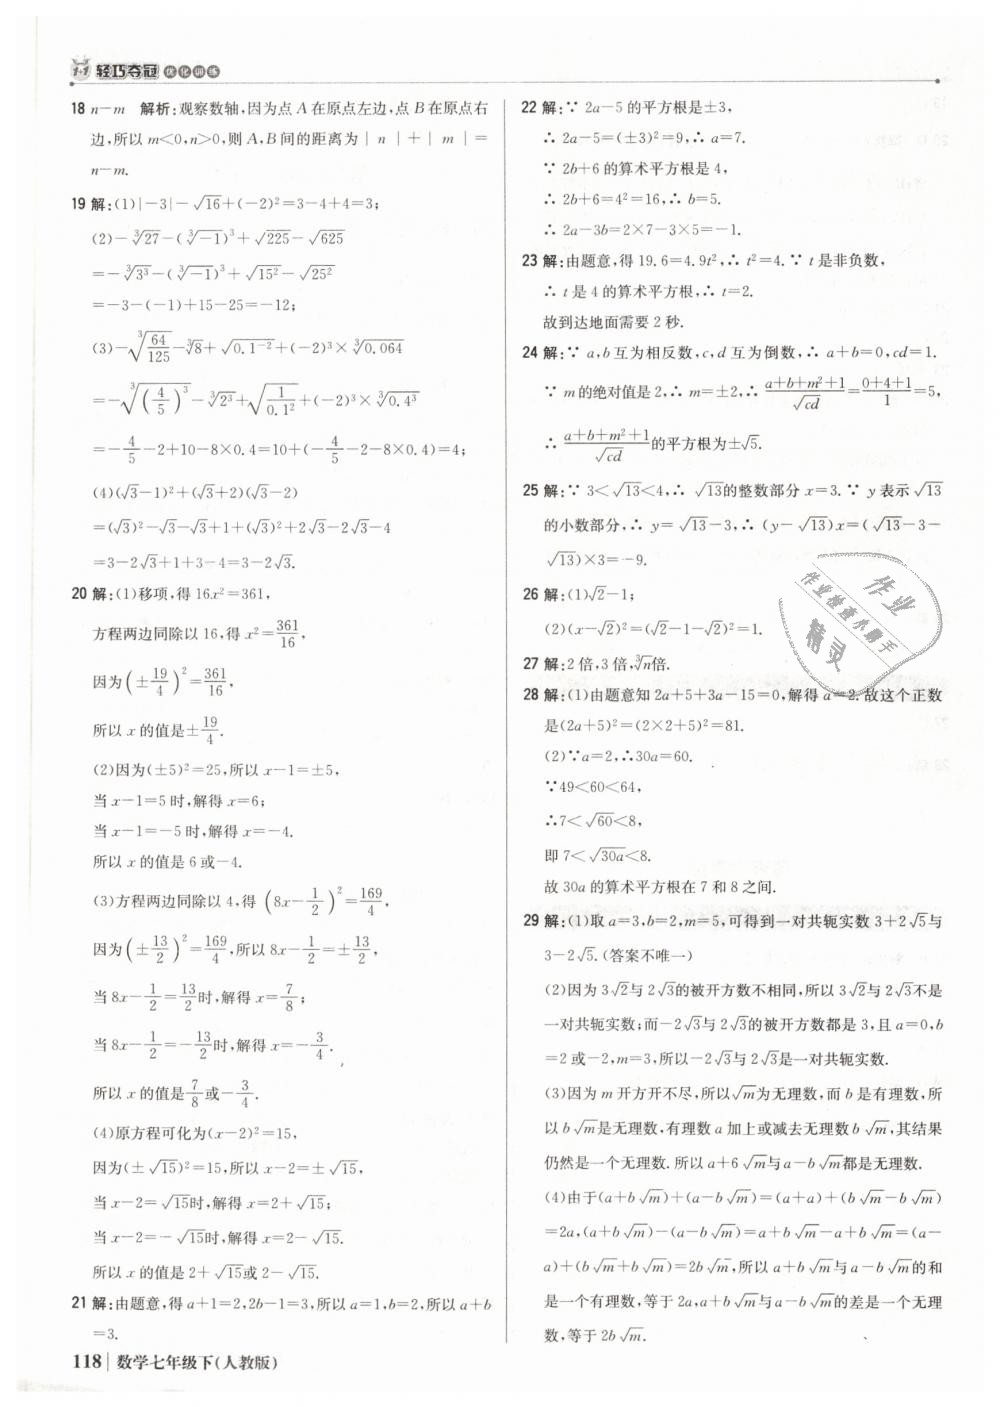 1+1 轻巧夺冠 优化训练
18 n-m 解析:观察数轴,因为点 A 在原点左边,点 B 在原点右
边,所以 m<0,n>0,则 A,B 间的距离为 | n | + | m | =
n-m.
19 解:(1)|-3|-√16+(-2)²=3-4+4=3;
(2)-∛27-(∛-1)³+√225-√625
=-∛3³-(∛-1)³+√15²-√25²
=-3-(-1)+15-25=-12;
(3)-∛(64/125)-∛8+√0.1⁻²+(-2)³×∛0.064
=-∛((4/5)³)-∛2³+√(1/0.1²)+(-2)³×∛0.4³
=-4/5-2+10-8×0.4=10+(-4/5-2-8×0.4)=4;
(4)(√3-1)²+(√3+2)(√3-2)
=(√3)²-√3-√3+1+(√3)²+2√3-2√3-4
=3-2√3+1+3-4=3-2√3.
20 解:(1)移项,得 16x²=361,
方程两边同除以 16,得 x²=361/16,
因为(±19/4)²=361/16,
所以 x 的值是±19/4.
(2)因为(±5)²=25,所以 x-1=±5,
当 x-1=5 时,解得 x=6;
当 x-1=-5 时,解得 x=-4.
所以 x 的值是 6 或-4.
(3)方程两边同除以 4,得 (8x-1/2)²=169/4,
因为(±13/2)²=169/4,所以 8x-1/2=±13/2,
当 8x-1/2=13/2时,解得 x=7/8;
当 8x-1/2=-13/2时,解得 x=-3/4.
所以 x 的值是7/8或-3/4.
(4)原方程可化为(x-2)²=15,
因为(±√15)²=15,所以 x-2=±√15,
当 x-2=√15时,解得 x=2+√15;
当 x-2=-√15时,解得 x=2-√15.
所以 x 的值是 2+√15或 2-√15.
21 解:由题意,得 a+1=2,2b-1=3,所以 a=1,b=2,所以 a+b
=3.
22 解:∵ 2a-5 的平方根是±3,
∴ 2a-5=(±3)²=9,∴ a=7.
∵ 2b+6 的算术平方根是 4,
∴ 2b+6=4²=16,∴ b=5.
∴ 2a-3b=2×7-3×5=-1.
23 解:由题意,得 19.6=4.9t²,∴ t²=4.∵ t 是非负数,
∴ t 是 4 的算术平方根,∴ t=2.
故到达地面需要 2 秒.
24 解:∵ a,b 互为相反数,c,d 互为倒数,∴ a+b=0,cd=1.
∵ m 的绝对值是 2,∴ m=±2,∴ (a+b+m²+1)/√cd=(0+4+1)/1=5,
∴ (a+b+m²+1)/√cd的平方根为±√5.
25 解:∵ 3<√13<4,∴ √13的整数部分 x=3.∵ y 表示√13
的小数部分,∴ y=√13-3,∴ (y-√13)x=(√13-3-
√13)×3=-9.
26 解:(1)√2-1;
(2)(x-√2)²=(√2-1-√2)²=1.
27 解:2 倍,3 倍,∛n倍.
28 解:(1)由题意知 2a+5+3a-15=0,解得 a=2.故这个正数
是(2a+5)²=(2×2+5)²=81.
(2)∵a=2,∴30a=60.
∵49<60<64,
∴7<√60<8,
即 7<√30a<8.
故 30a 的算术平方根在 7 和 8 之间.
29 解:(1)取 a=3,b=2,m=5,可得到一对共轭实数 3+2√5与
3-2√5.(答案不唯一)
(2)因为 3√2与 2√3的被开方数不相同,所以 3√2与 2√3不是
一对共轭实数;而-2√3与 2√3的被开方数都是 3,且 a=0,b
=2 或-2,m=3,所以-2√3与 2√3是一对共轭实数.
(3)因为 m 开方开不尽,所以√m为无理数,而 b 是有理数,所
以 b√m是无理数,有理数 a 加上或减去无理数 b√m,其结果
仍然是一个无理数.所以 a+6√m与 a-b√m都是无理数.
(4)由于(a+b√m)+(a-b√m)=(a+a)+(b√m-b√m)
=2a,(a+b√m)-(a-b√m)=a+b√m-a+b√m=(a-
a)+(b√m+b√m)=2b√m,所以 a+b√m与 a-b√m的和
是一个有理数,等于 2a,a+b√m与 a-b√m的差是一个无理
数,等于 2b√m.
作业
作业检查小助手
精灵
118 数学七年级下(人教版)